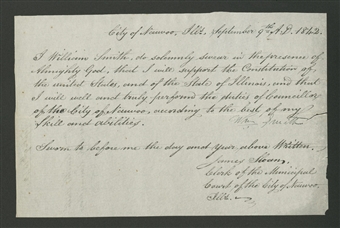 City of Nauvoo, Ills. September 9th A.D. 1842.
I William Smith, do solemnly swear in the presence of
Almighty God, that I will support the Constitution of
the united States, and of the State of Illinois, and that
I will well and truly perform the duties of Councillor
of the City of Nauvoo, according to the best of my
Skill and abilities.
Wm Smith
Sworn to before me the day and year above Written.
James Sloan,
Clerk of the Municipal
Court of the City of Nauvoo,
Ills.